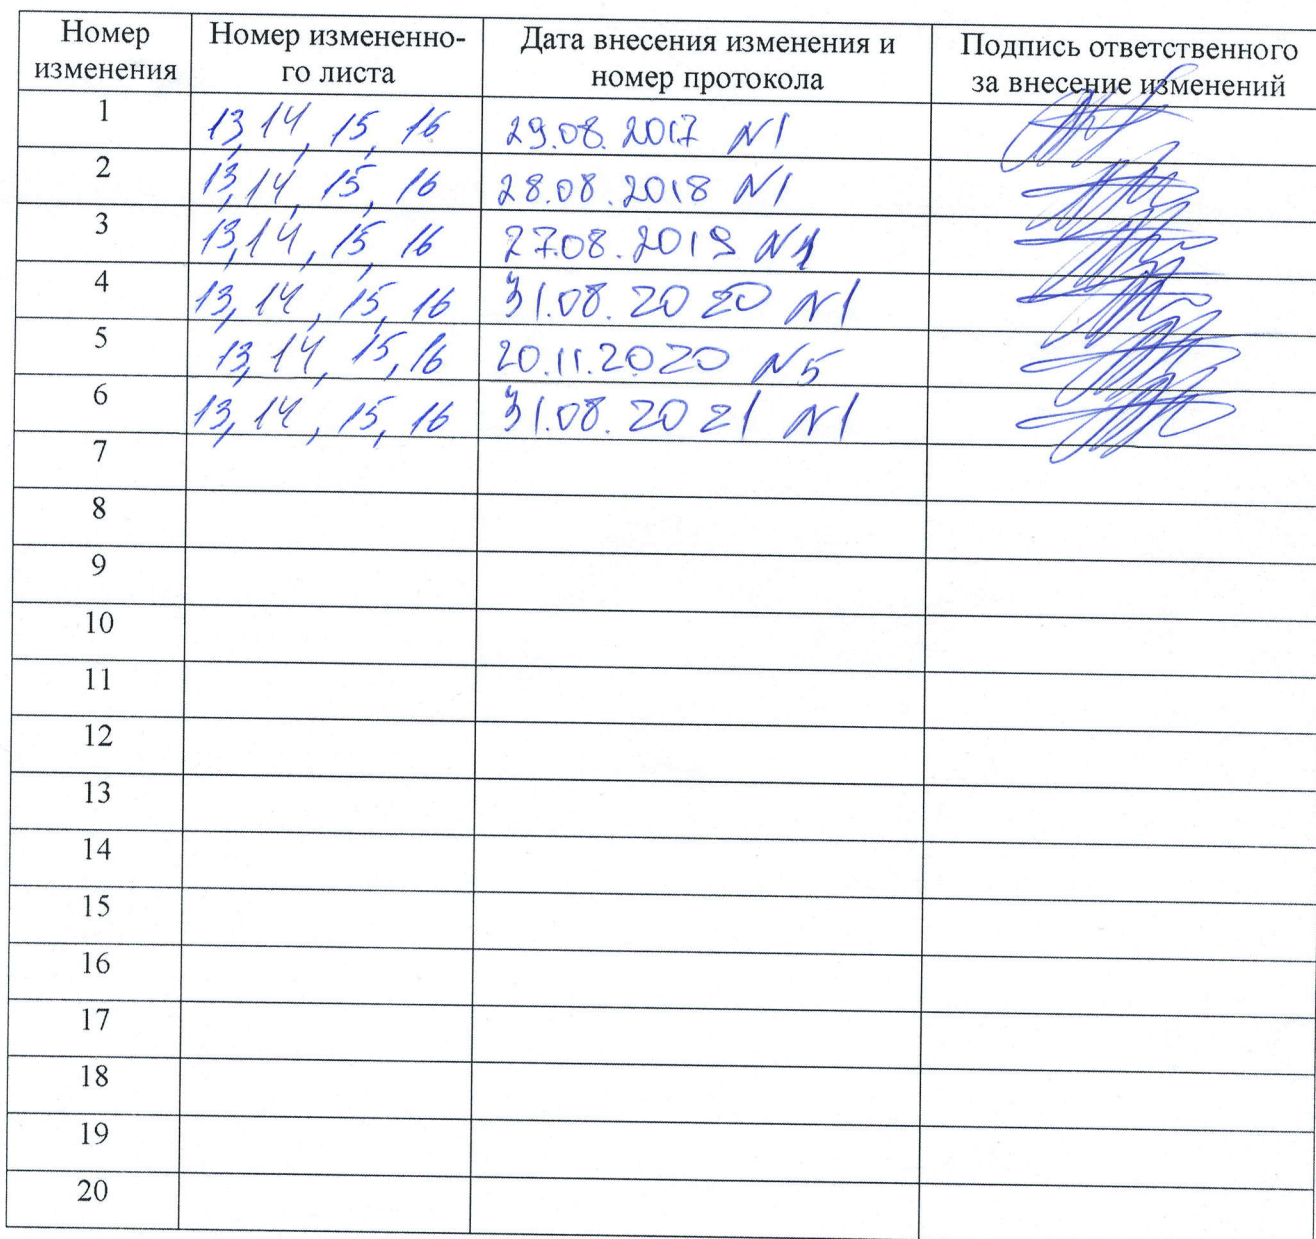 Номер изменения
Номер измененно-
го листа
Дата внесения изменения и
номер протокола
Подпись ответственного
за внесение изменений
1 13, 14, 15, 16 29.08.2017 N1
2 13, 14, 15, 16 28.08.2018 N1
3 13, 14, 15, 16 27.08.2019 N1
4 13, 14, 15, 16 31.08.2020 N1
5 13, 14, 15, 16 20.11.2020 N5
6 13, 14, 15, 16 31.08.2021 N1
7
8
9
10
11
12
13
14
15
16
17
18
19
20